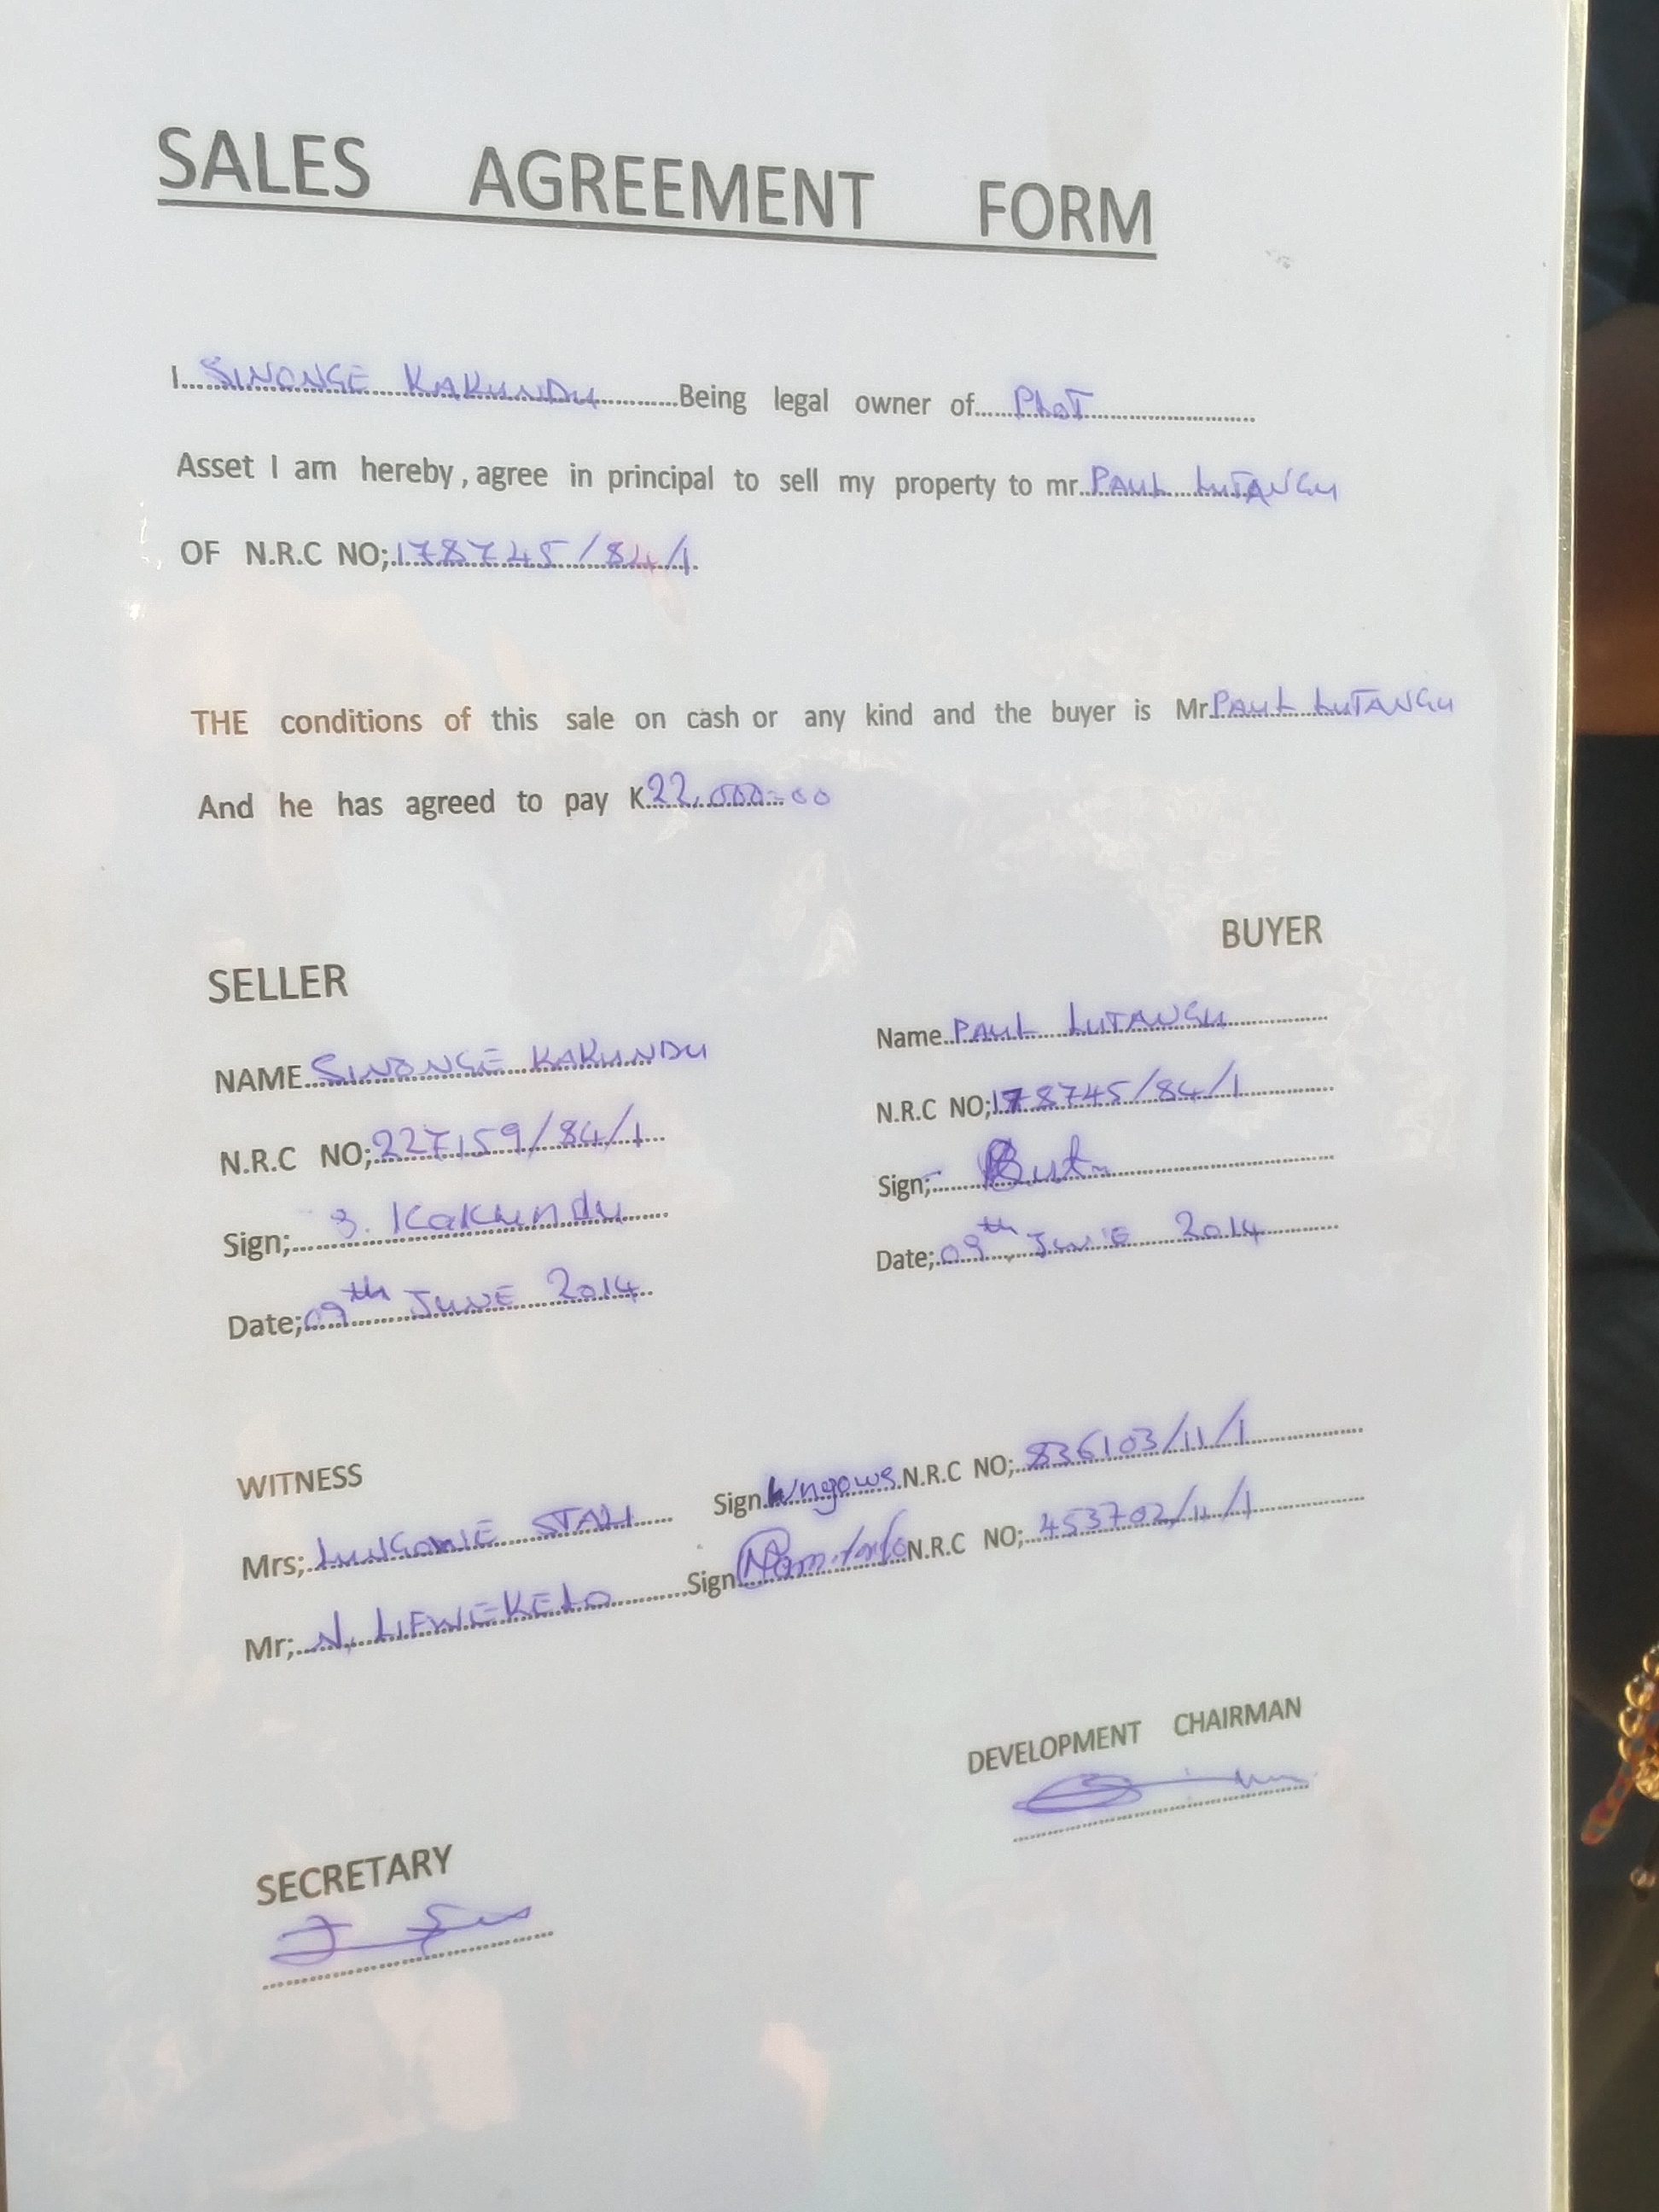 SALES AGREEMENT FORM
I SINONGE KAKUNDU Being legal owner of PLOT
Asset I am hereby, agree in principal to sell my property to mr. PAUL LUTANGU
OF N.R.C NO; 178745/84/1
THE conditions of this sale on cash or any kind and the buyer is Mr PAUL LUTANGU
And he has agreed to pay K 22,000=00
SELLER
NAME SINONGE KAKUNDU
N.R.C NO; 227159/84/1
Sign; S. Kakundu
Date; 09th JUNE 2014
BUYER
Name PAUL LUTANGU
N.R.C NO; 178745/84/1
Sign;
Date; 09th JUNE 2014
WITNESS
Mrs; LUNGOWE Sign N.R.C NO; 836103/11/1
Mr; N. LIFWEKELO Sign N.R.C NO; 453702/11/1
DEVELOPMENT CHAIRMAN
SECRETARY